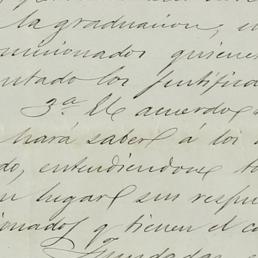 la graduacion, en
misionados quienes
ntado los justifica
3.ª El acuerdo
hará saber á los
do, entendiendose to
n lugar sin respu
ionados y tienen el ca
Fundadas